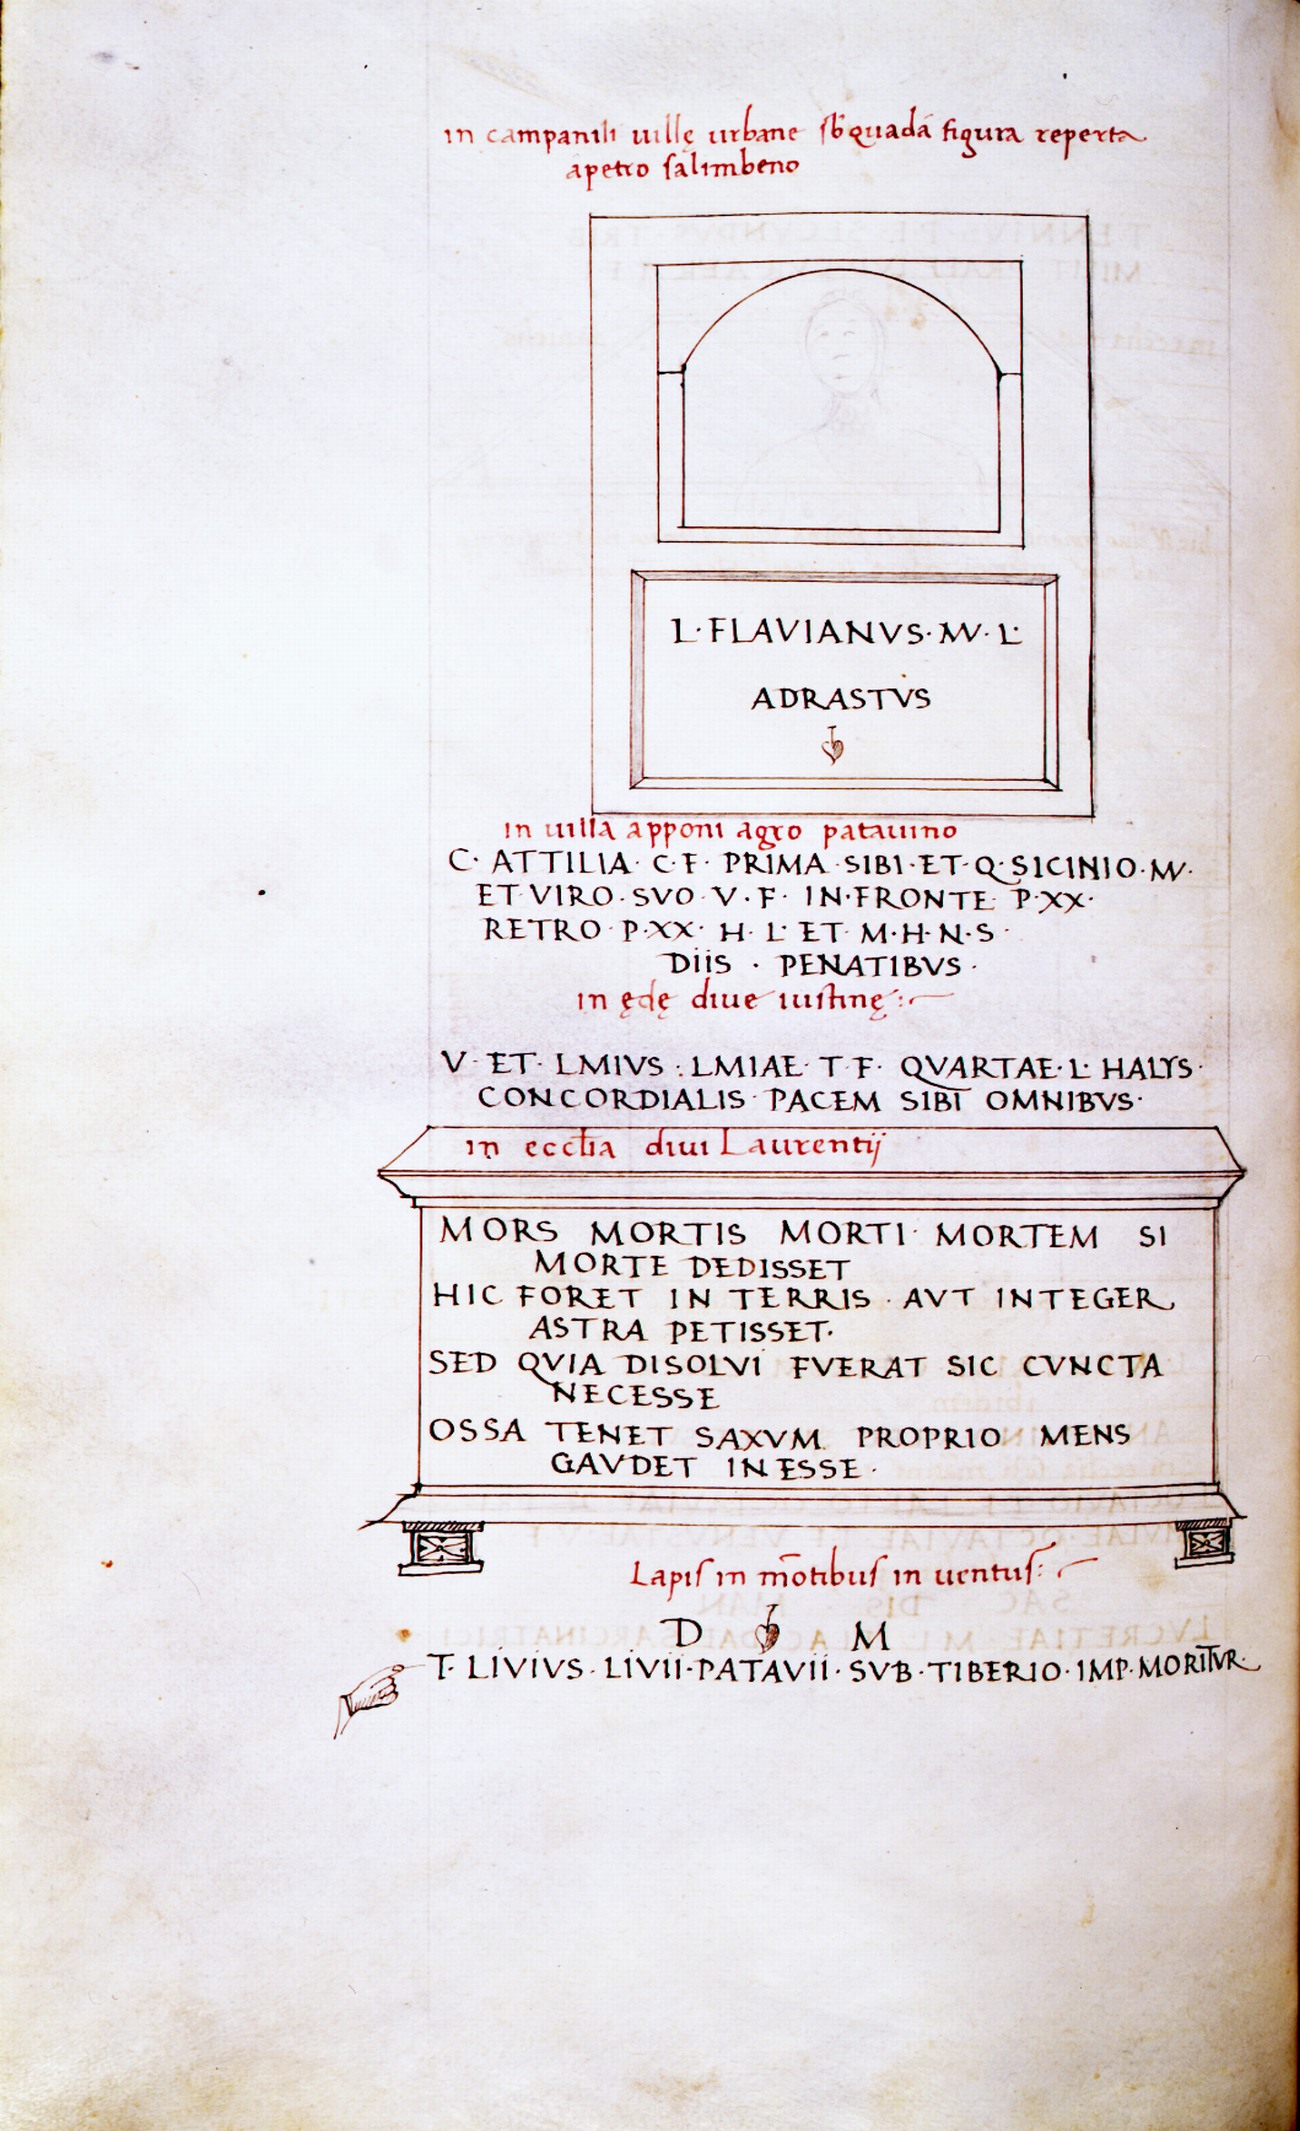 in campanili uillę urbane sb quadā figura reperta
apetro salimbeno
L· FLAVIANVS· M· L·
ADRASTVS
in uilla apponi agro patauino
C· ATTILIA· C· F· PRIMA· SIBI· ET· Q· SICINIO· M·
ET VIRO· SVO· V· F· IN· FRONTE· P· XX·
RETRO· P· XX· H· L· ET· M· H· N· S·
DIIS · PENATIBVS ·
in ędę diue iustinę :·
V· ET· LMIVS : LMIAE· T· F· QVARTAE· L· HALYS·
CONCORDIALIS· PACEM SIBI OMNIBVS·
in ecclīa diui Laurentij
MORS MORTIS MORTI· MORTEM SI
MORTE DEDISSET
HIC FORET IN TERRIS · AVT INTEGER
ASTRA PETISSET·
SED QVIA DISOLVI FVERAT SIC CVNCTA
NECESSE
OSSA TENET SAXVM PROPRIO MENS
GAVDET INESSE ·
Lapis in mōtibus in uentus :·
D M
T· LIVIVS· LIVII· PATAVII· SVB· TIBERIO· IMP· MORITVR·